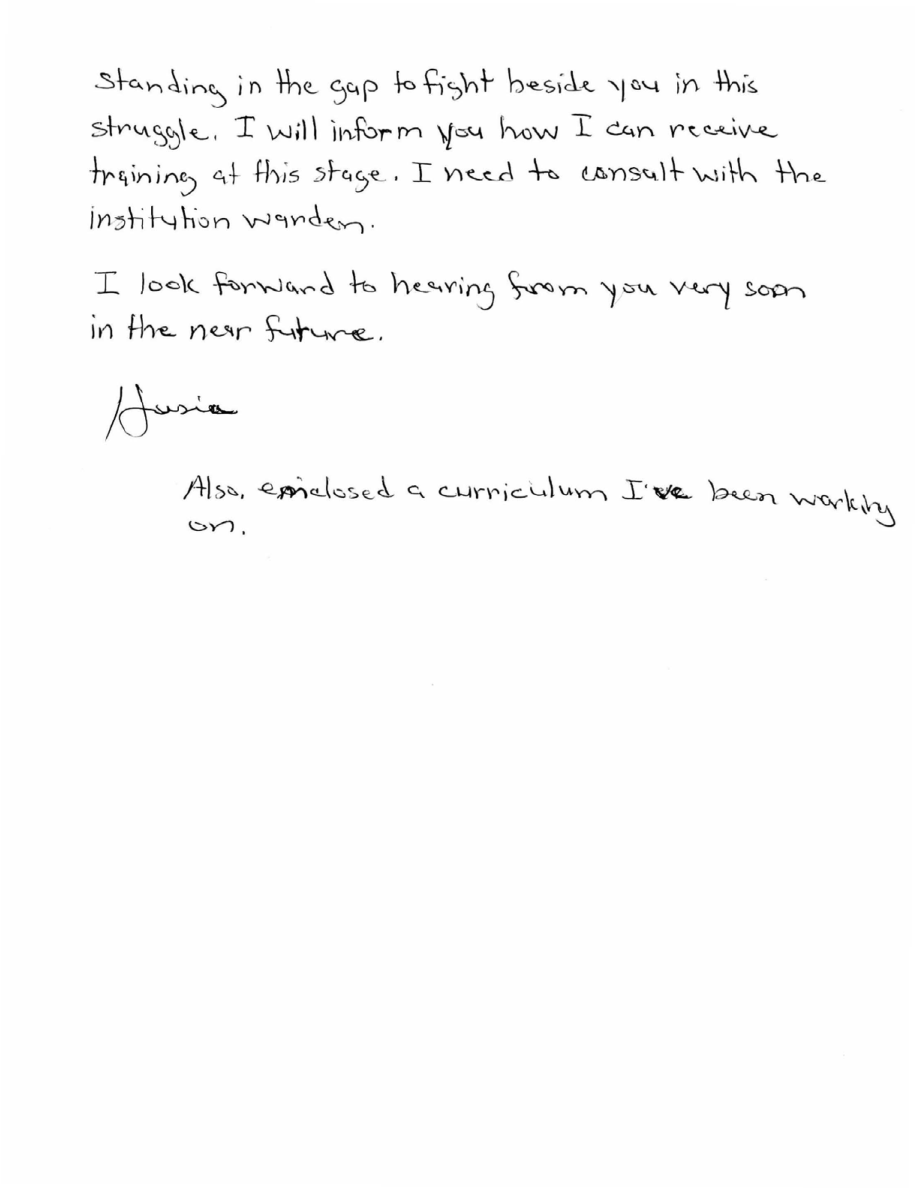 Standing in the gap to fight beside you in this
struggle. I will inform you how I can receive
training at this stage. I need to consult with the
institution warden.
I look forward to hearing from you very soon
in the near future.
Also, enclosed a curriculum I've been working
on.